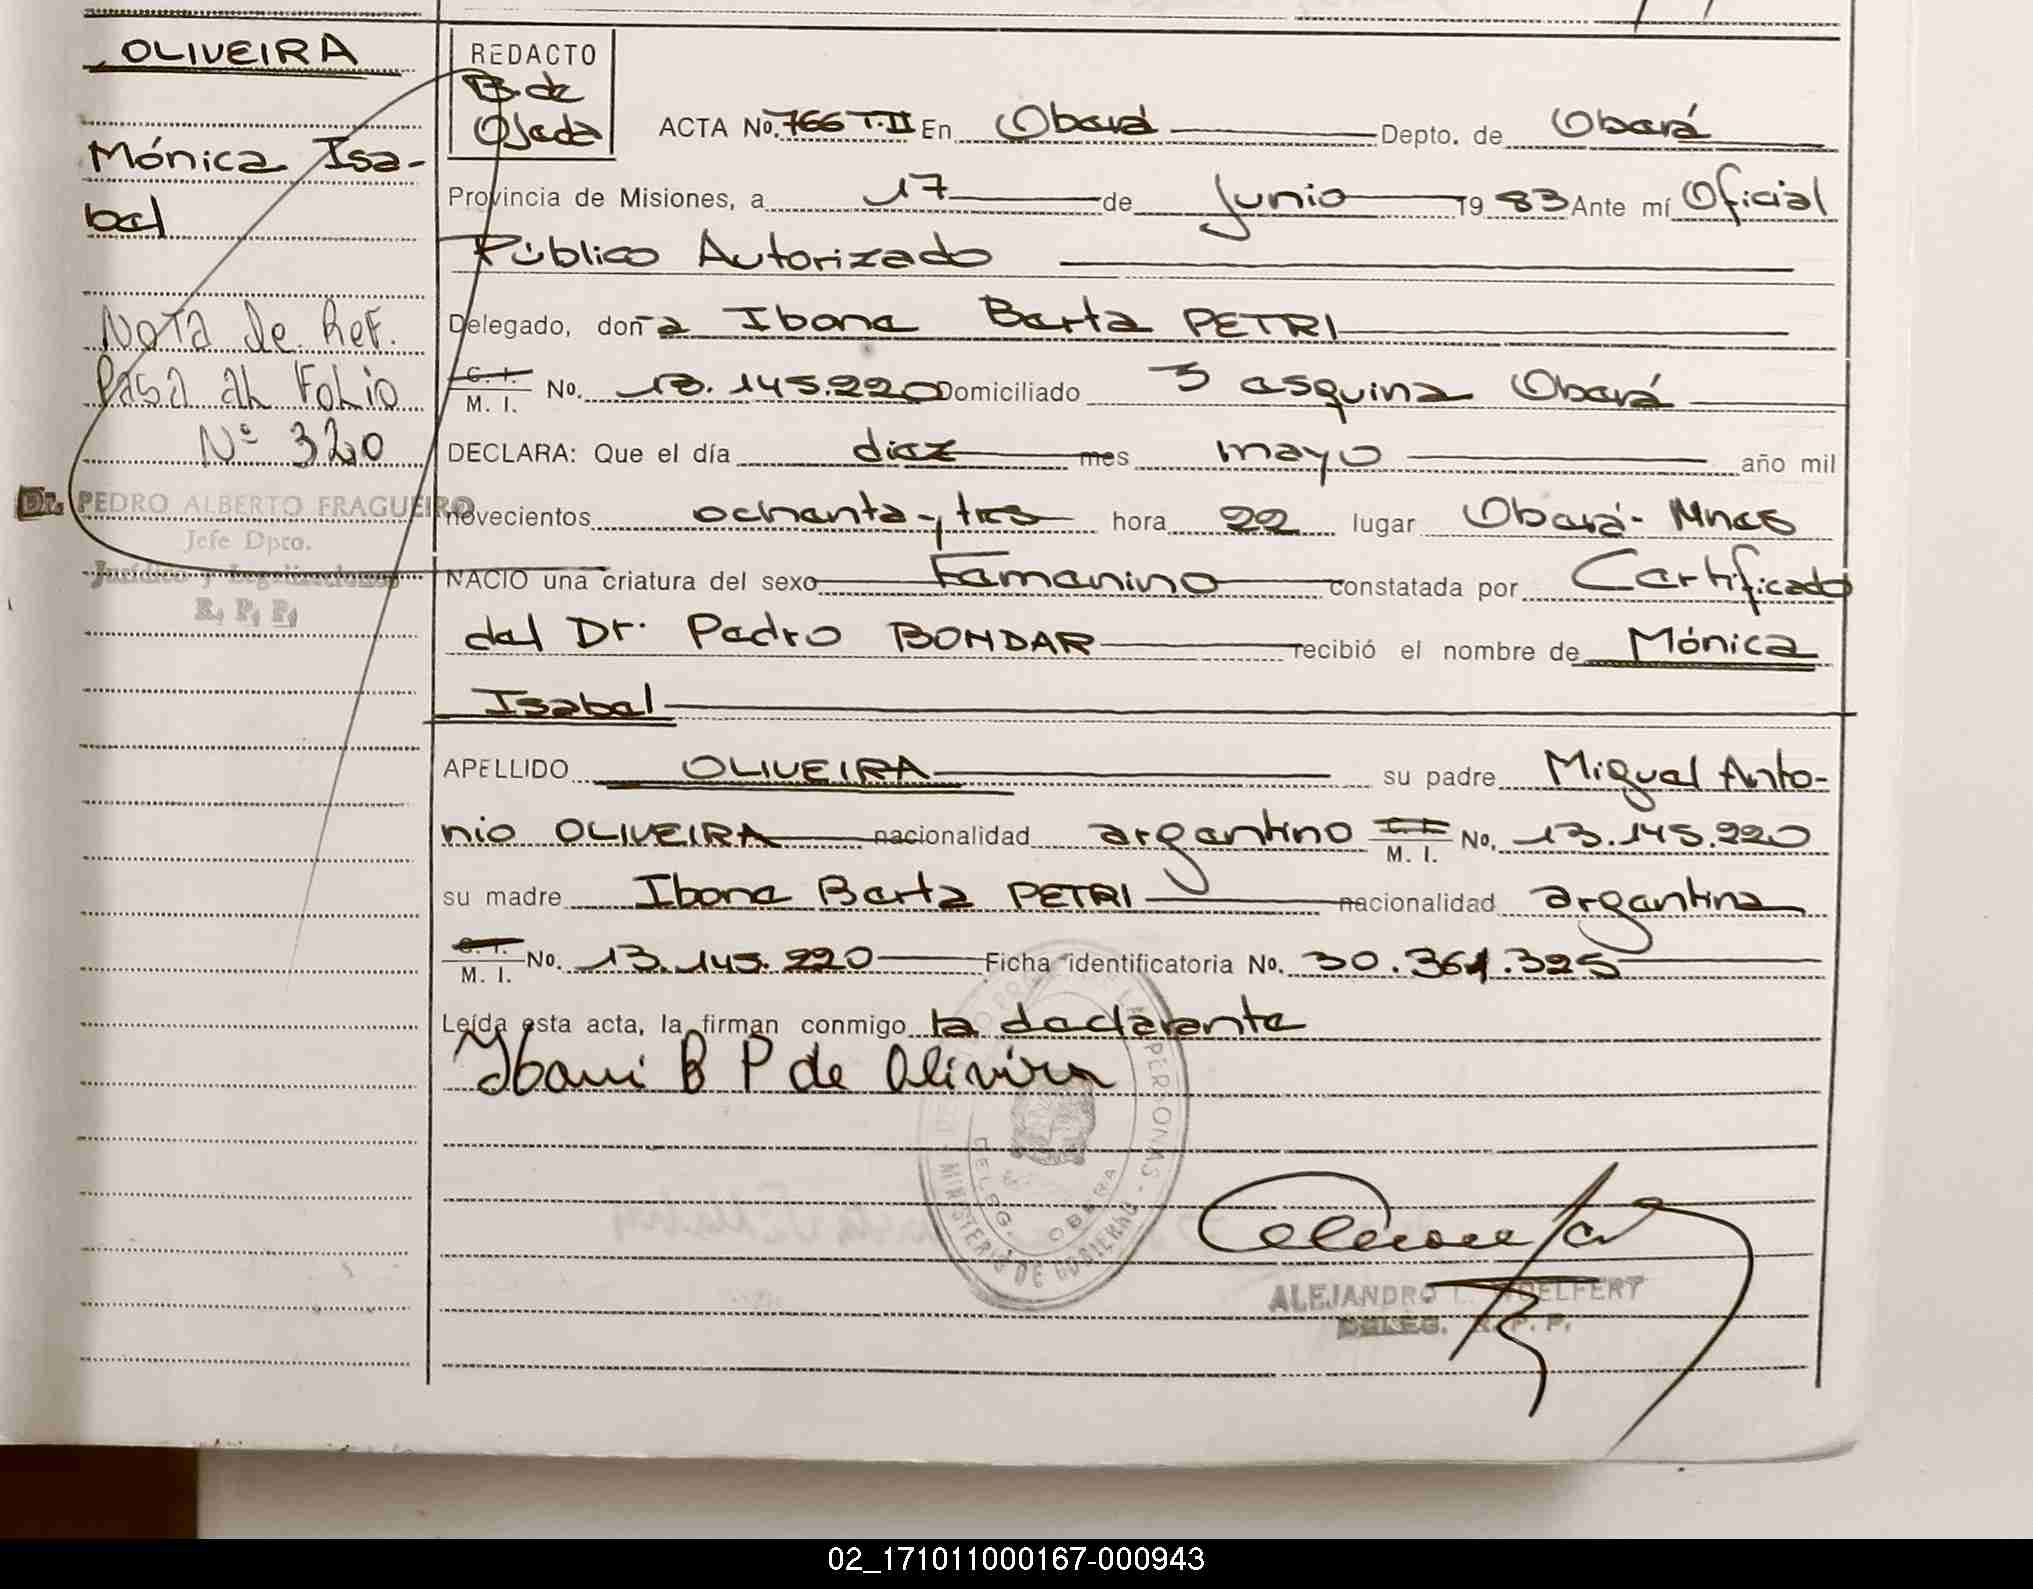 OLIVEIRA
Mónica Isa-
bel
Nota de Ref.
Pasa al Folio
Nº 320
Dr. PEDRO ALBERTO FRAGUEIRO
Jefe Dpto.
Jurídico y Legalizaciones
R. P. P.
REDACTO
B. de
Ojeda
ACTA No. 766 T.II En Oberá Depto. de Oberá
Provincia de Misiones, a 17 de Junio 19 83 Ante mí Oficial
Público Autorizado
Delegado, doña Ibone Berta PETRI
C. I. / M. I. No. 13.145.220 Domiciliado 3 esquina Oberá
DECLARA: Que el día diez mes mayo año mil
novecientos ochenta y tres hora 22 lugar Oberá - Mnes
NACIO una criatura del sexo Femenino constatada por Certificado
del Dr. Pedro BONDAR recibió el nombre de Mónica
Isabel
APELLIDO OLIVEIRA su padre Miguel Anto-
nio OLIVEIRA nacionalidad argentino C. I. / M. I. No. 13.145.220
su madre Ibone Berta PETRI nacionalidad argentina
C. I. / M. I. No. 13.145.220 Ficha identificatoria No. 30.361.325
Leída esta acta, la firman conmigo la declarante
B P de Oliveira
PERSONAS - MINISTERIO DE GOBIERNO
DELEG. OBERA
ALEJANDRO L. WOELFERT
DELEG. R. P. P.
02_171011000167-000943